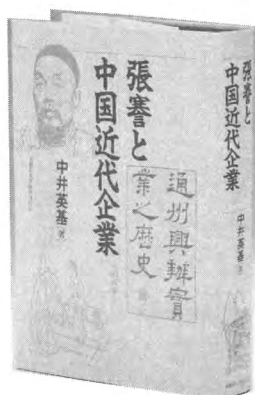 張謇と
中国近代企業
中井英基 著
通州興辦實
業之歷史
張謇と
中国近代企業
中井英基 著